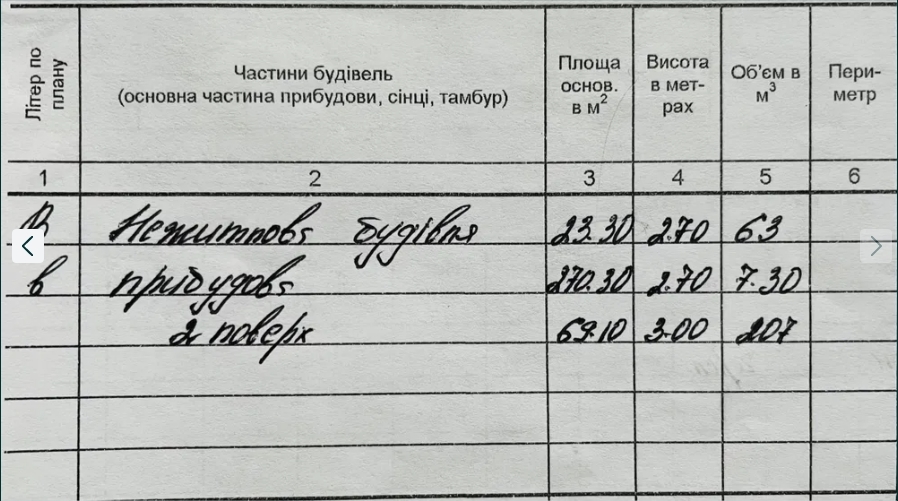 Літер по плану
Частини будівель
(основна частина прибудови, сінці, тамбур)
Площа основ. в м²
Висота в мет-рах
Об'єм в м³
Пери-метр
1 2 3 4 5 6
В Нежитлова будівля 23.30 2.70 63
в прибудова 270.30 2.70 7.30
2 поверх 69.10 3.00 207